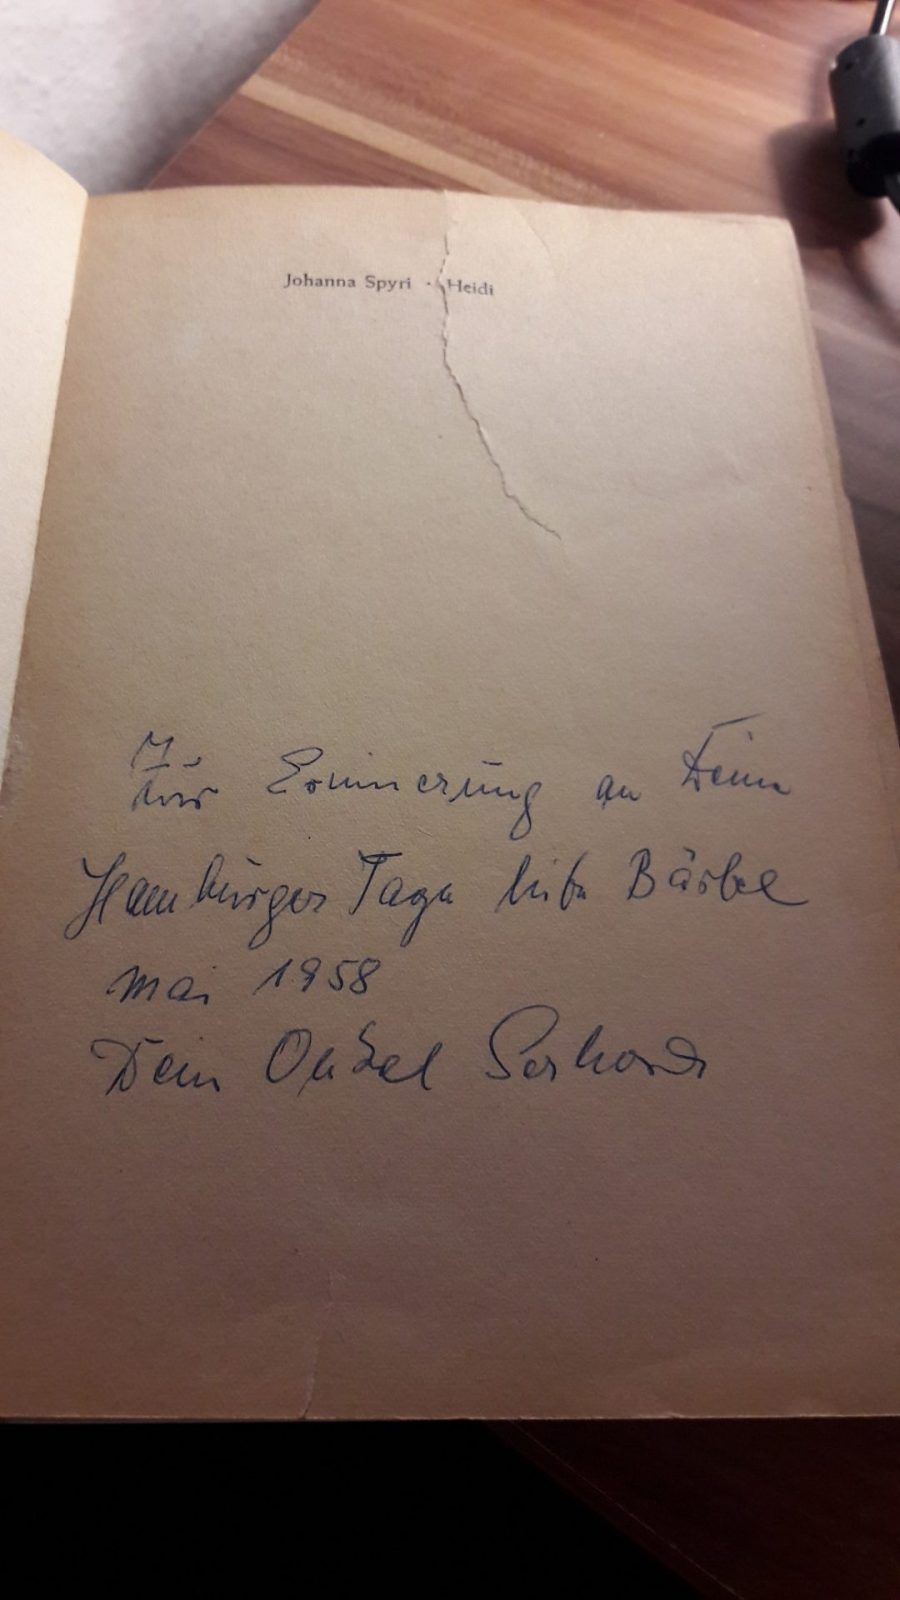 Johanna Spyri · Heidi
Zur Erinnerung an Deine
Hamburger Tage liebe Bärbel
Mai 1958
Dein Onkel Gerhard